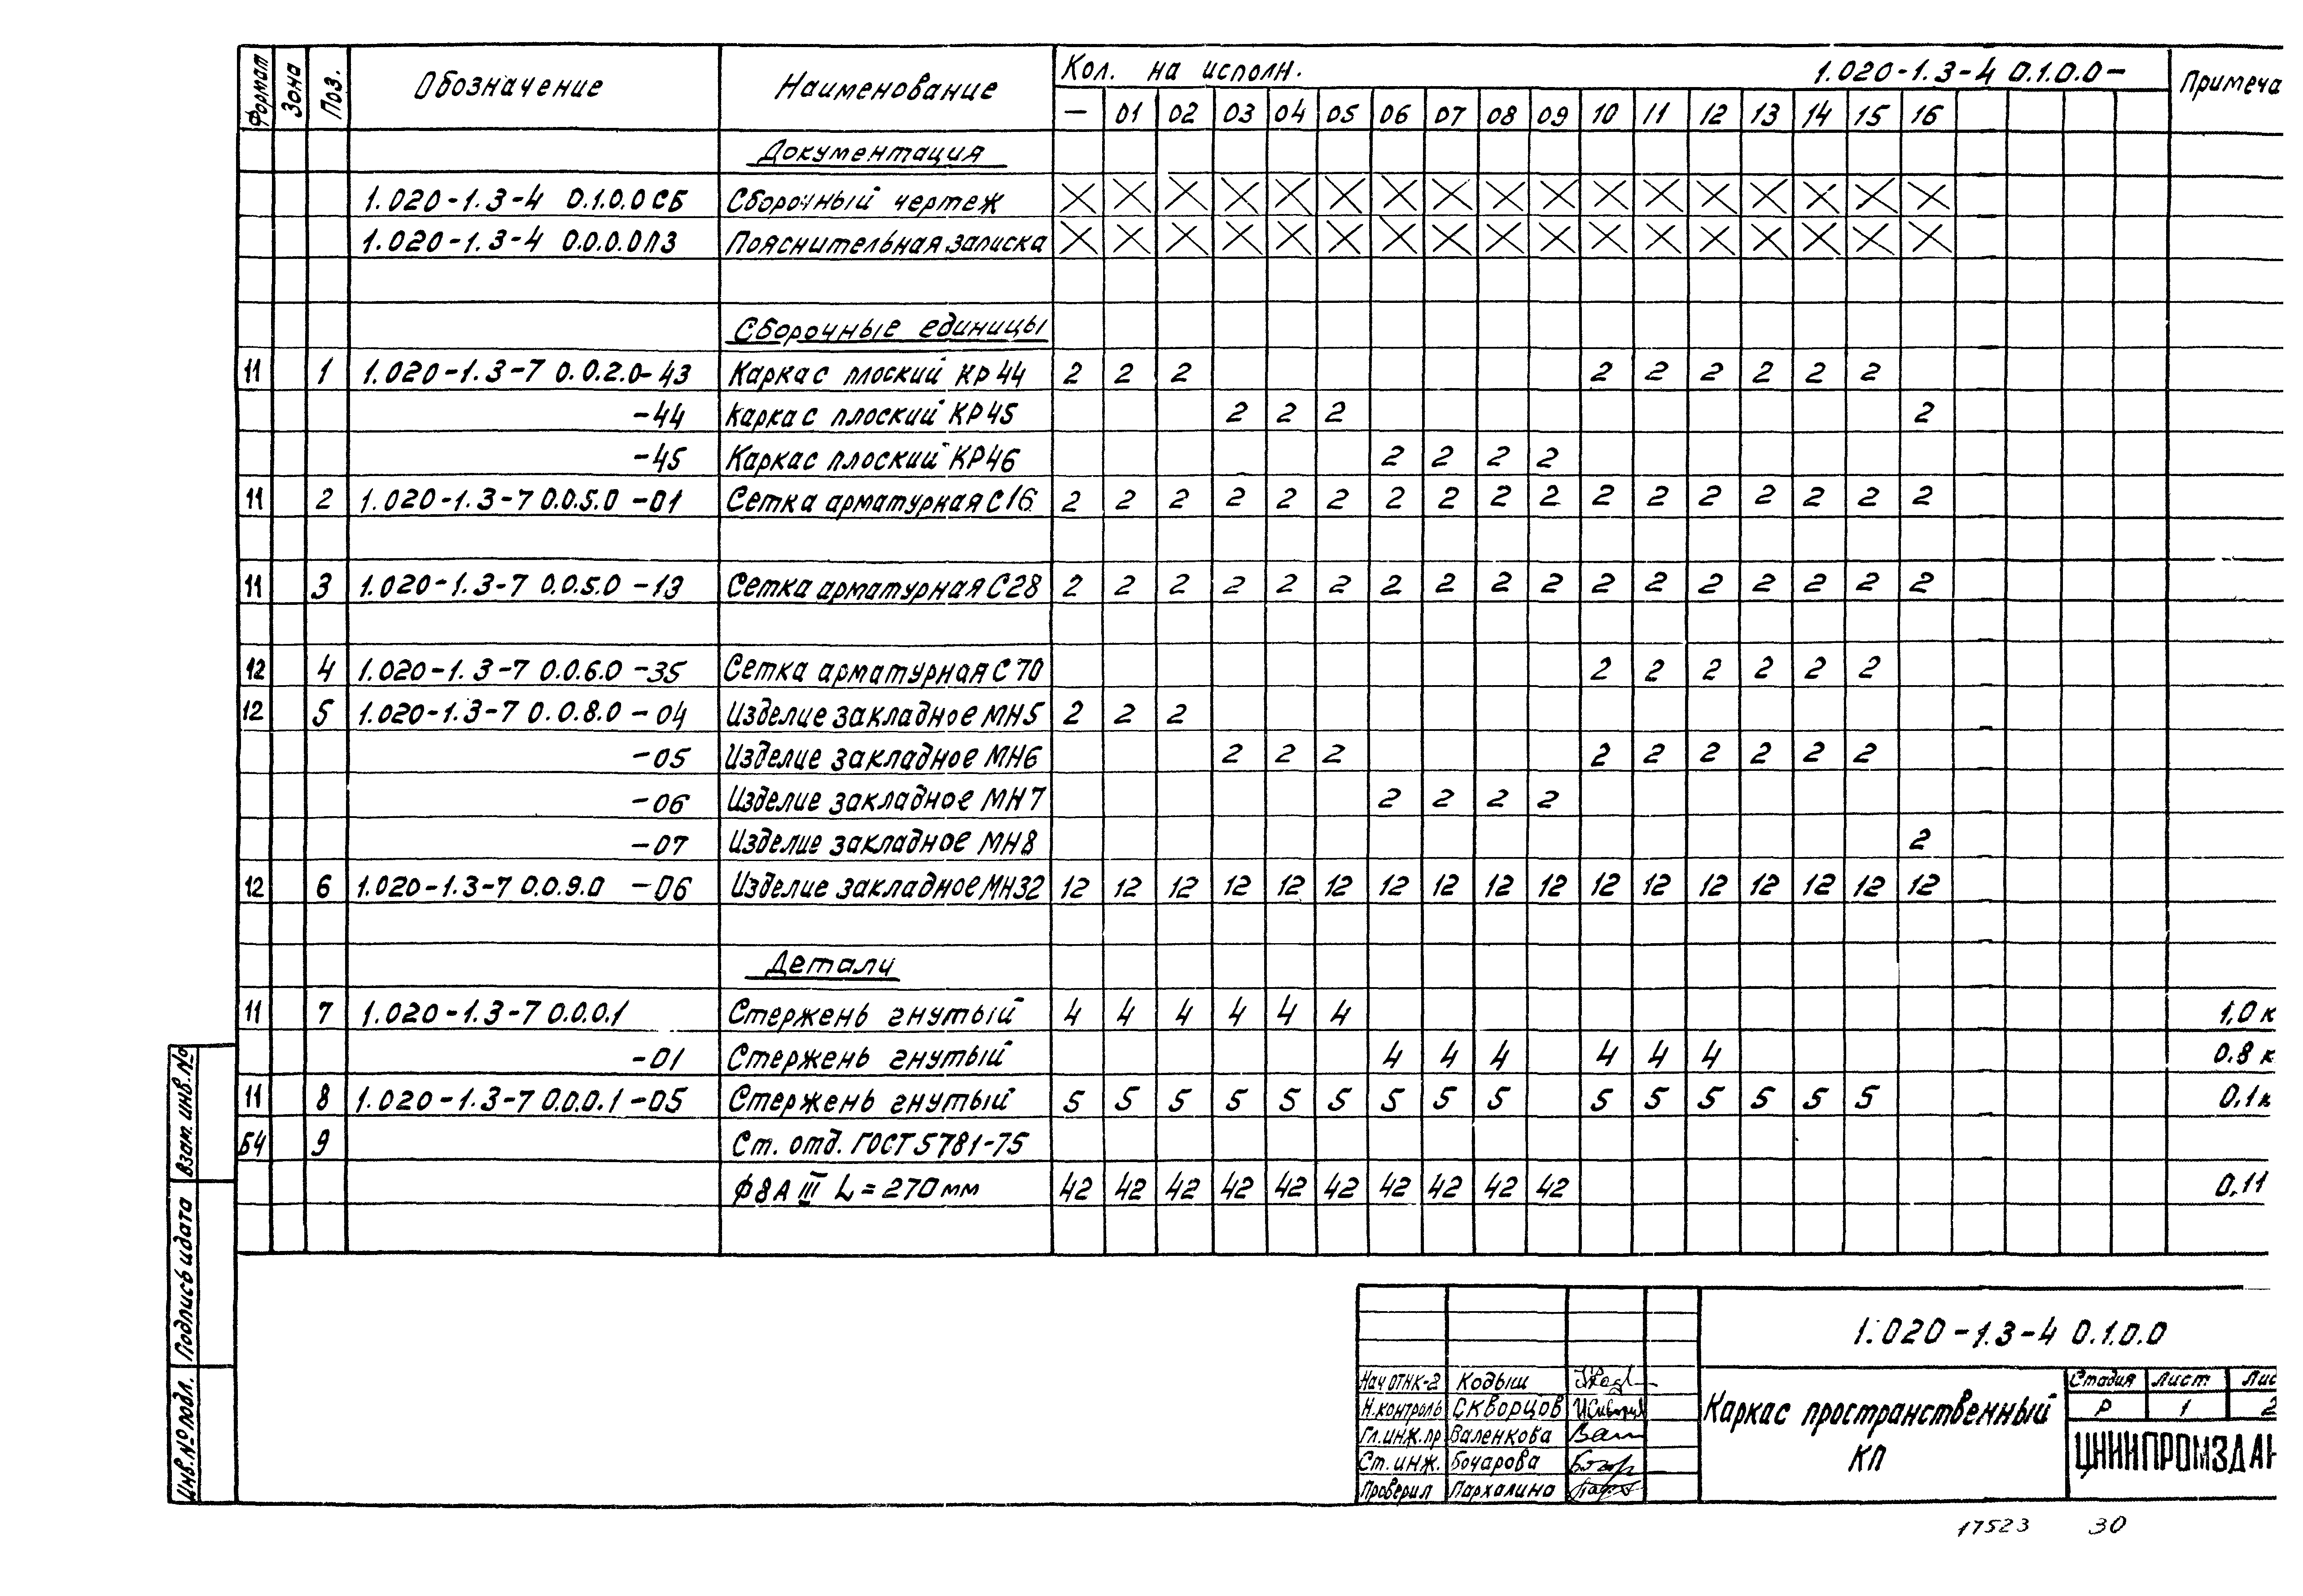 Формат Зона Поз. Обозначение Наименование Кол. на исполн. 1.020-1.3-4 0.1.0.0- Примеча
— 01 02 03 04 05 06 07 08 09 10 11 12 13 14 15 16
Документация
1.020-1.3-4 0.1.0.0СБ Сборочный чертеж X X X X X X X X X X X X X X X X X
1.020-1.3-4 0.0.0.0ПЗ Пояснительная записка X X X X X X X X X X X X X X X X X
Сборочные единицы
11 1 1.020-1.3-7 0.0.2.0-43 Каркас плоский КР44 2 2 2 2 2 2 2 2 2
-44 Каркас плоский КР45 2 2 2 2
-45 Каркас плоский КР46 2 2 2 2
11 2 1.020-1.3-7 0.0.5.0 -01 Сетка арматурная С16 2 2 2 2 2 2 2 2 2 2 2 2 2 2 2 2 2
11 3 1.020-1.3-7 0.0.5.0 -13 Сетка арматурная С28 2 2 2 2 2 2 2 2 2 2 2 2 2 2 2 2 2
12 4 1.020-1.3-7 0.0.6.0 -35 Сетка арматурная С70 2 2 2 2 2 2
12 5 1.020-1.3-7 0.0.8.0 -04 Изделие закладное МН5 2 2 2
-05 Изделие закладное МН6 2 2 2 2 2 2 2 2 2
-06 Изделие закладное МН7 2 2 2 2
-07 Изделие закладное МН8 2
12 6 1.020-1.3-7 0.0.9.0 -06 Изделие закладное МН32 12 12 12 12 12 12 12 12 12 12 12 12 12 12 12 12 12
Детали
11 7 1.020-1.3-7 0.0.0.1 Стержень гнутый 4 4 4 4 4 4 1,0 к
-01 Стержень гнутый 4 4 4 4 4 4 0.8 к
11 8 1.020-1.3-7 0.0.0.1 -05 Стержень гнутый 5 5 5 5 5 5 5 5 5 5 5 5 5 5 5 0.1к
Б4 9 Ст. отд. ГОСТ 5781-75
Ф8АIII L=270мм 42 42 42 42 42 42 42 42 42 42 0.11
Взам. инв. №
Подпись и дата
Инв. № подл.
1.020-1.3-4 0.1.0.0
Нач ОТНК-2 Кодыш
Н.контроль Скворцов
Гл.инж.пр Валенкова
Ст.инж. Бочарова
Проверил Пархалина
Каркас пространственный
КП
Стадия Лист Лис
Р 1 2
ЦНИИПРОМЗДАН
17523 30